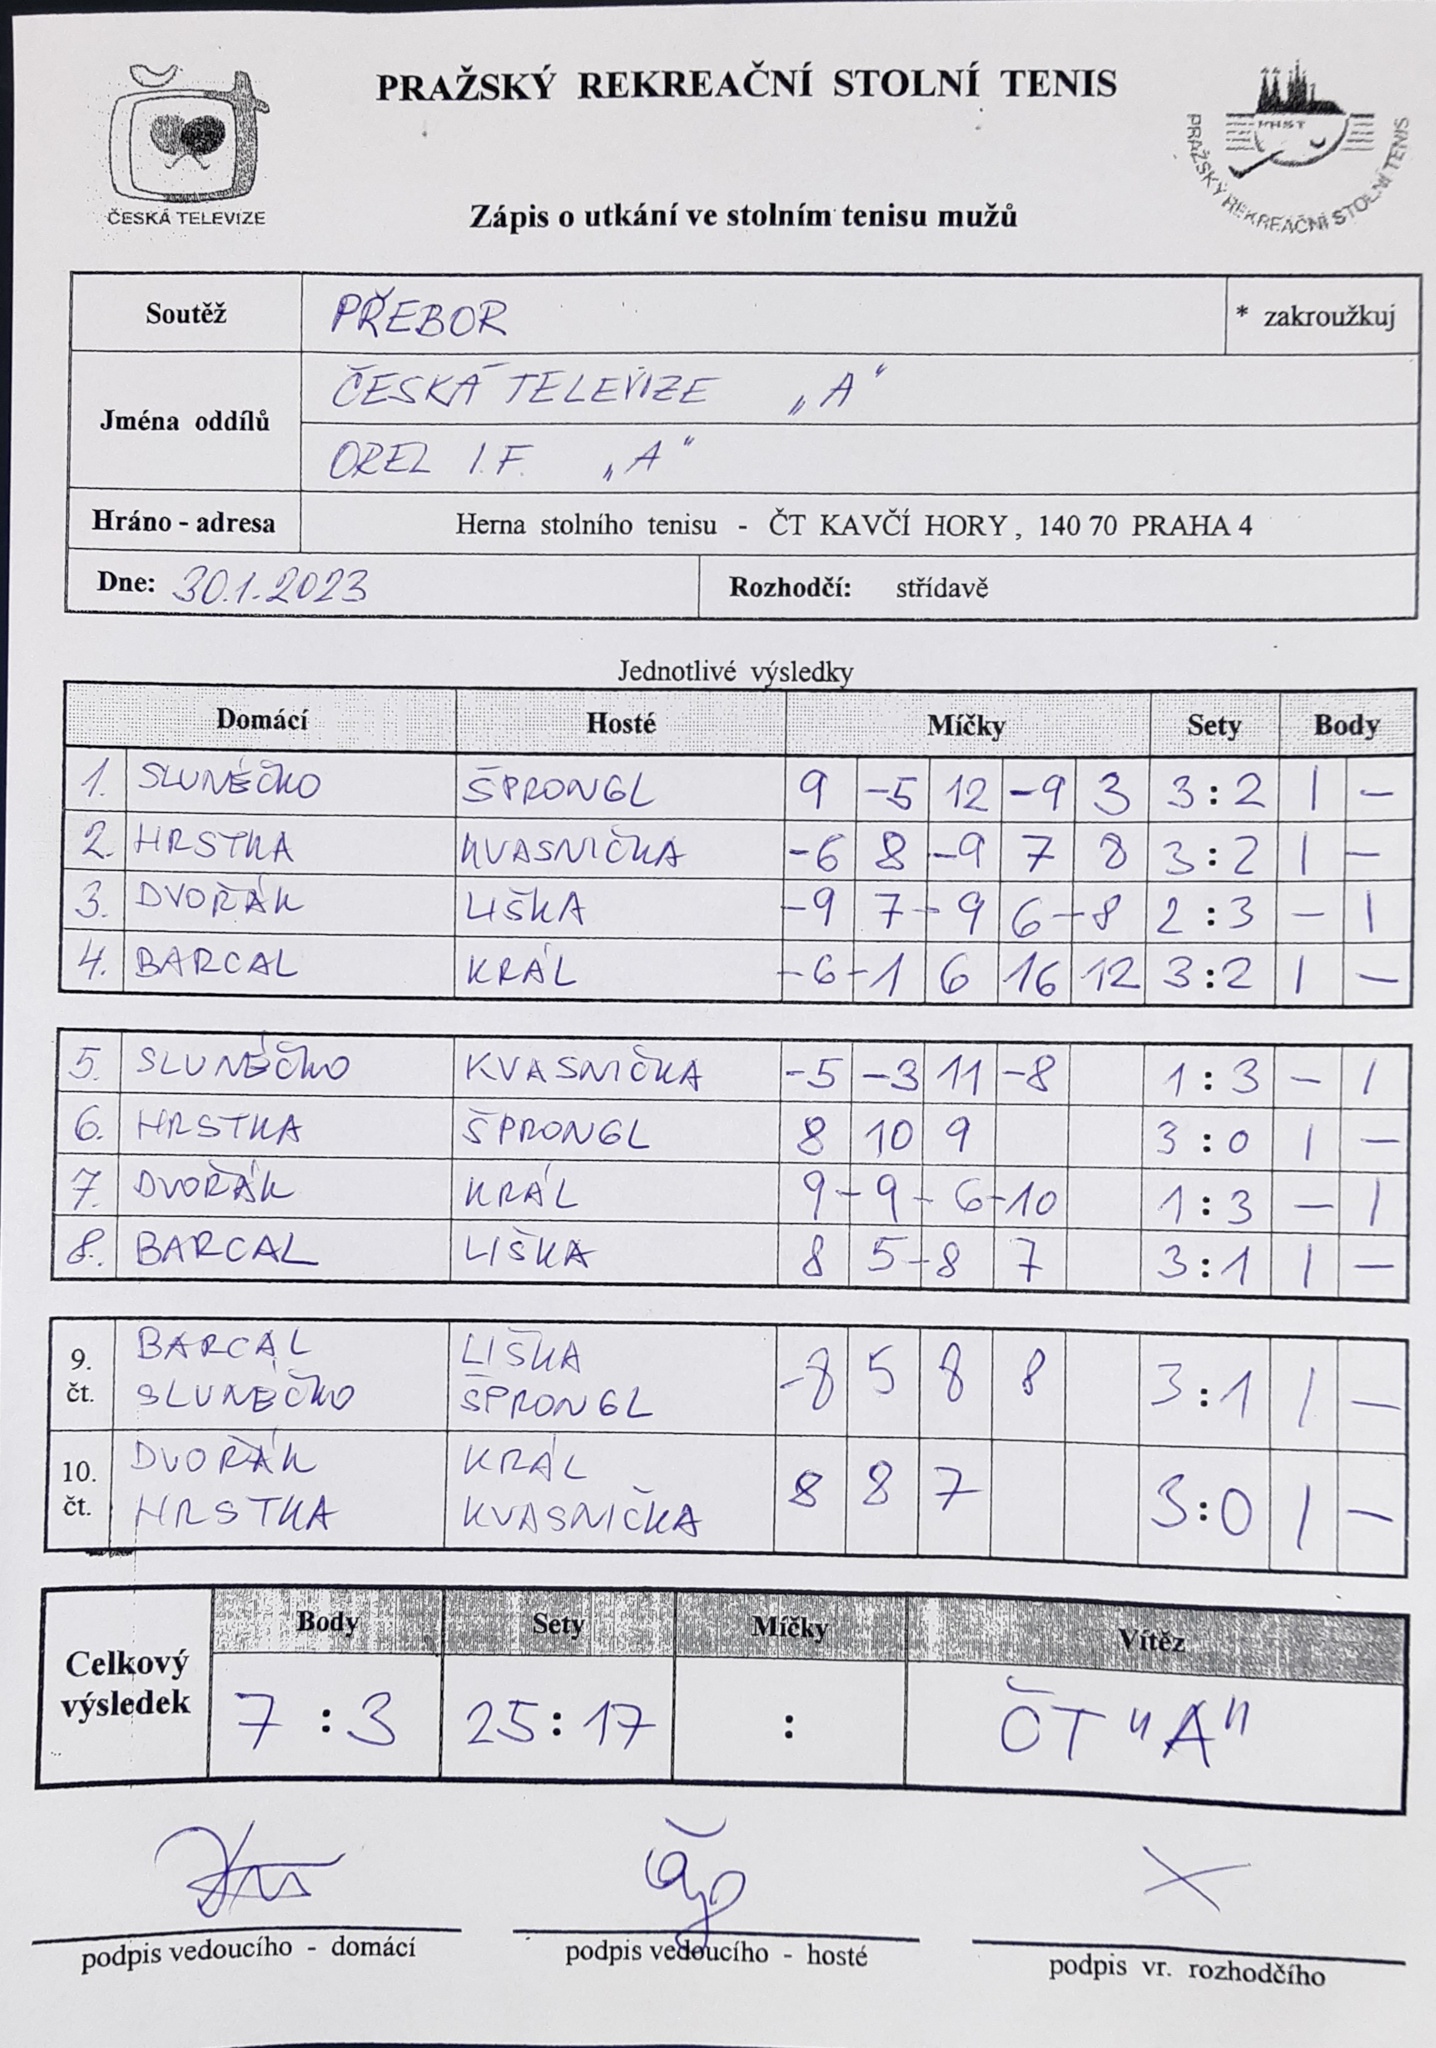 PRAŽSKÝ REKREAČNÍ STOLNÍ TENIS
ČESKÁ TELEVIZE
PRST
PRAŽSKÝ REKREAČNÍ STOLNÍ TENIS
Zápis o utkání ve stolním tenisu mužů
Soutěž PŘEBOR * zakroužkuj
Jména oddílů
ČESKÁ TELEVIZE „A"
OREL I.F. „A"
Hráno - adresa Herna stolního tenisu - ČT KAVČÍ HORY, 140 70 PRAHA 4
Dne: 30.1.2023 Rozhodčí: střídavě
Jednotlivé výsledky
Domácí Hosté Míčky Sety Body
1. SLUNÉČKO ŠPRONGL 9 -5 12 -9 3 3:2 1 -
2. HRSTKA KVASNIČKA -6 8 -9 7 8 3:2 1 -
3. DVOŘÁK LIŠKA -9 7 -9 6 -8 2:3 - 1
4. BARCAL KRÁL -6 -1 6 16 12 3:2 1 -
5. SLUNÉČKO KVASNIČKA -5 -3 11 -8 1:3 - 1
6. HRSTKA ŠPRONGL 8 10 9 3:0 1 -
7. DVOŘÁK KRÁL 9 -9 -6 -10 1:3 - 1
8. BARCAL LIŠKA 8 5 -8 7 3:1 1 -
9. čt. BARCAL LIŠKA -8 5 8 8 3:1 1 -
SLUNÉČKO ŠPRONGL
10. čt. DVOŘÁK KRÁL 8 8 7 3:0 1 -
HRSTKA KVASNIČKA
Body Sety Míčky Vítěz
Celkový výsledek 7:3 25:17 : ČT "A"
podpis vedoucího - domácí
podpis vedoucího - hosté
podpis vr. rozhodčího